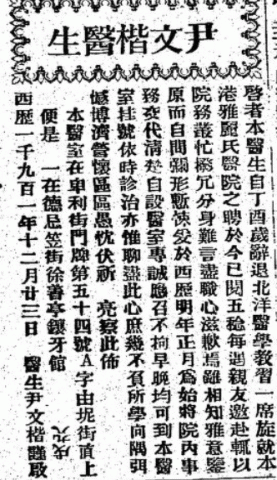 尹文楷醫生
啓者本醫生自丁酉歲辭退北洋醫學教習一席旋就本
港雅麗氏醫院之聘於今已閱五稔每遇親友邀赴輒以
院務叢忙撥冗分身難言盡職心滋歉焉雖相知雅意鑒
原而自問形慙悚爰於西歷明年正月為始將院內事
務交代清楚自設醫室專誠應召不拘早晚均可到本醫
室挂號依時診治亦惟聊盡此心庶幾不負所學向隅弭
憾博濟營懷區區愚忱伏祈 亮察此佈
本醫室在卑利街門牌第五十四號A字由坭街頂上
便是 一在德忌笠街徐善亭鑲牙館
西歷一千九百一年十二月廿三日 醫生尹文楷謹啟